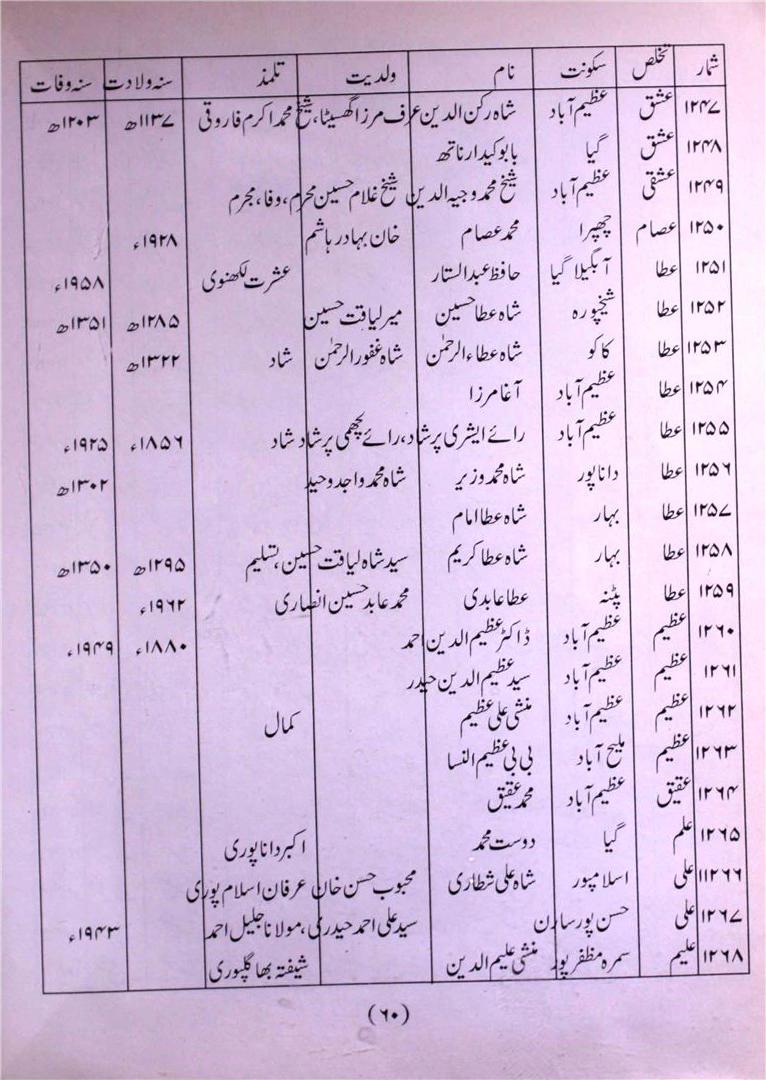 شمار تخلص سکونت نام ولدیت تلمذ سنہ ولادت سنہ وفات
۱۲۴۷ عشق عظیم آباد شاہ رکن الدین عرف مرزا گھسیٹا، شیخ محمد اکرم فاروقی ۱۱۳۷ھ ۱۲۰۳ھ
۱۲۴۸ عشق گیا بابو کیدار ناتھ
۱۲۴۹ عشقی عظیم آباد شیخ محمد وجیہ الدین شیخ غلام حسین محرم، وفا، مجرم
۱۲۵۰ عصام چھپرا محمد عصام خان بہادر ہاشم ۱۹۲۸ء
۱۲۵۱ عطا آبگیلا گیا حافظ عبدالستار عشرت لکھنوی ۱۹۵۸ء
۱۲۵۲ عطا شیخپورہ شاہ عطا حسین میر لیاقت حسین ۱۲۸۵ھ ۱۳۵۱ھ
۱۲۵۳ عطا کاکو شاہ عطاء الرحمٰن شاہ غفور الرحمٰن شاد ۱۳۲۲ھ
۱۲۵۴ عطا عظیم آباد آغا مرزا
۱۲۵۵ عطا عظیم آباد رائے ایشری پرشاد، رائے لچھمی پرشاد شاد ۱۸۵۶ء ۱۹۲۵ء
۱۲۵۶ عطا داناپور شاہ محمد وزیر شاہ محمد واجد وحید ۱۳۰۲ھ
۱۲۵۷ عطا بہار شاہ عطا امام
۱۲۵۸ عطا بہار شاہ عطا کریم سید شاہ لیاقت حسین، تسلیم ۱۲۹۵ھ ۱۳۵۰ھ
۱۲۵۹ عطا پٹنہ عطا عابدی محمد عابد حسین انصاری ۱۹۶۲ء
۱۲۶۰ عظیم عظیم آباد ڈاکٹر عظیم الدین احمد ۱۸۸۰ء ۱۹۴۹ء
۱۲۶۱ عظیم عظیم آباد سید عظیم الدین حیدر
۱۲۶۲ عظیم عظیم آباد منشی علی عظیم کمال
۱۲۶۳ عظیم ملیح آباد بی بی عظیم النسا
۱۲۶۴ عقیق عظیم آباد محمد عقیق
۱۲۶۵ علم گیا دوست محمد اکبر داناپوری
۱۱۲۶۶ علی اسلامپور شاہ علی شطاری محبوب حسن خان عرفان اسلام پوری
۱۲۶۷ علی حسن پور سارن سید علی احمد حیدری، مولانا جلیل احمد ۱۹۴۳ء
۱۲۶۸ علیم سمرہ مظفرپور منشی علیم الدین شیفتہ بھاگلپوری
(۶۰)